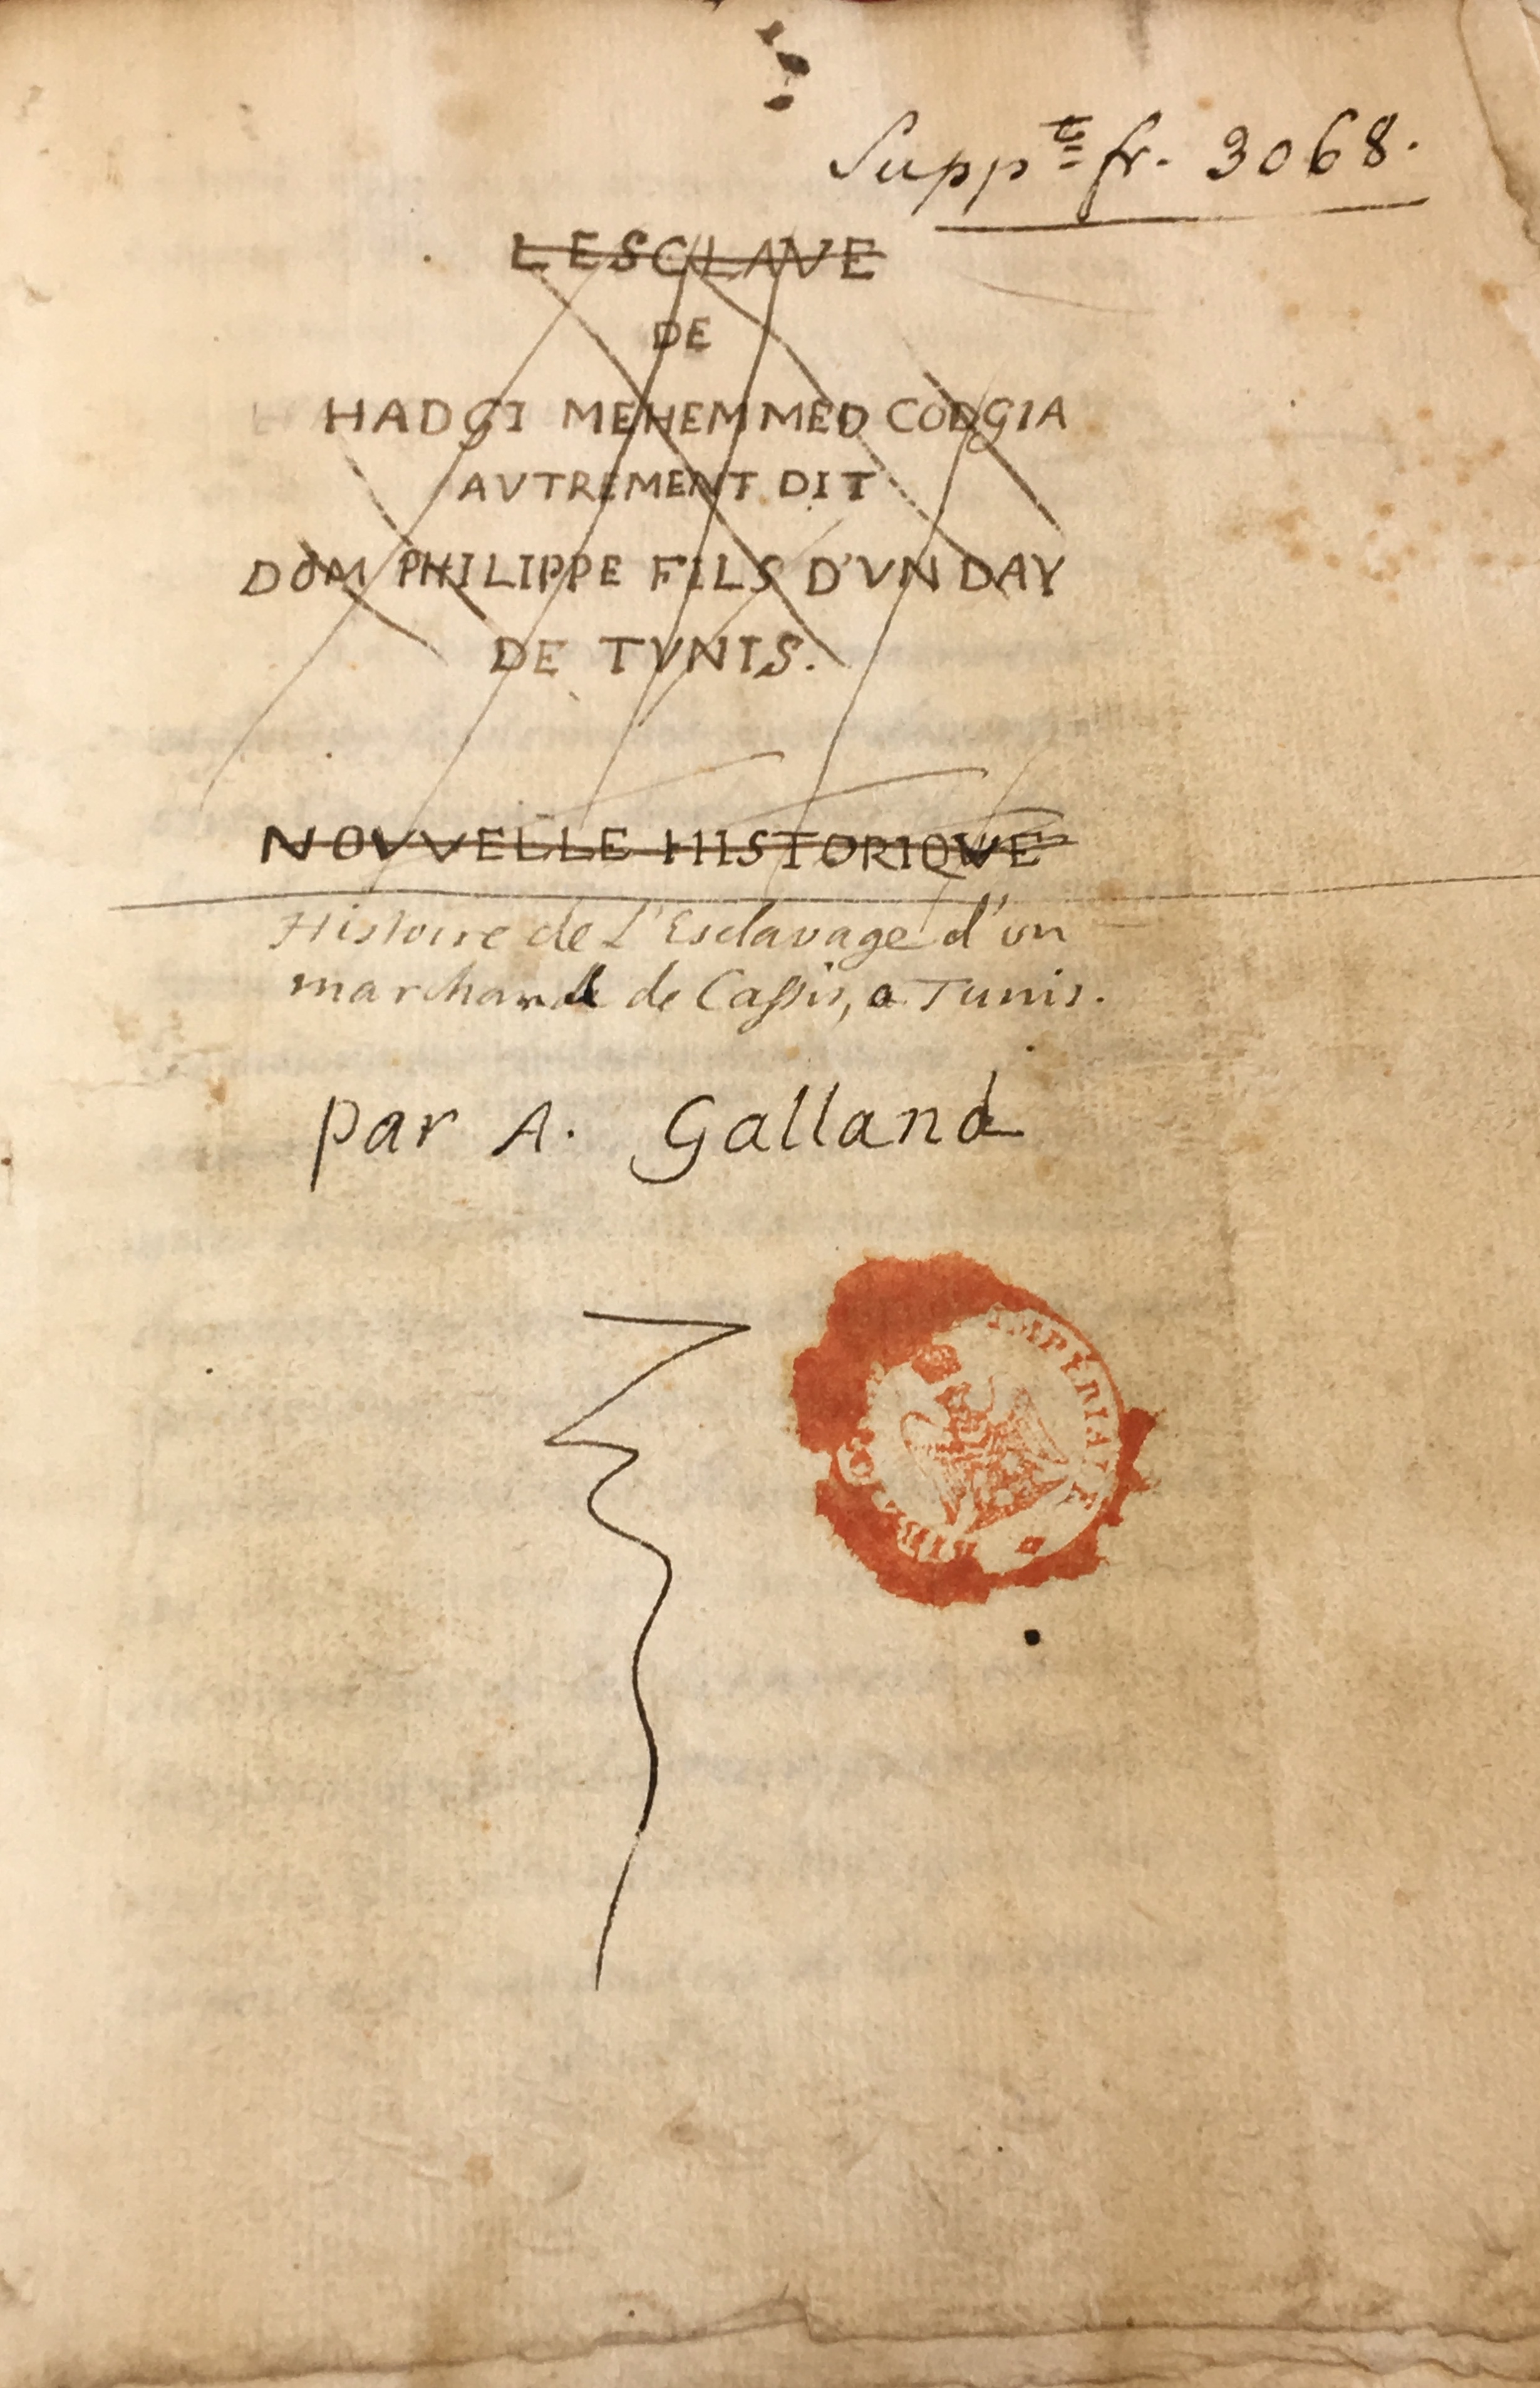 Supp.te fr. 3068.
LESCLAVE
DE
HADGI MEHEMMED CODGIA
AVTREMENT DIT
DOM PHILIPPE FILS D'VN DAY
DE TVNIS.
NOVVELLE HISTORIQVE
Histoire de L'Esclavage d'un
marchand de Cassis, a Tunis.
par A. Galland
IMPERIALE